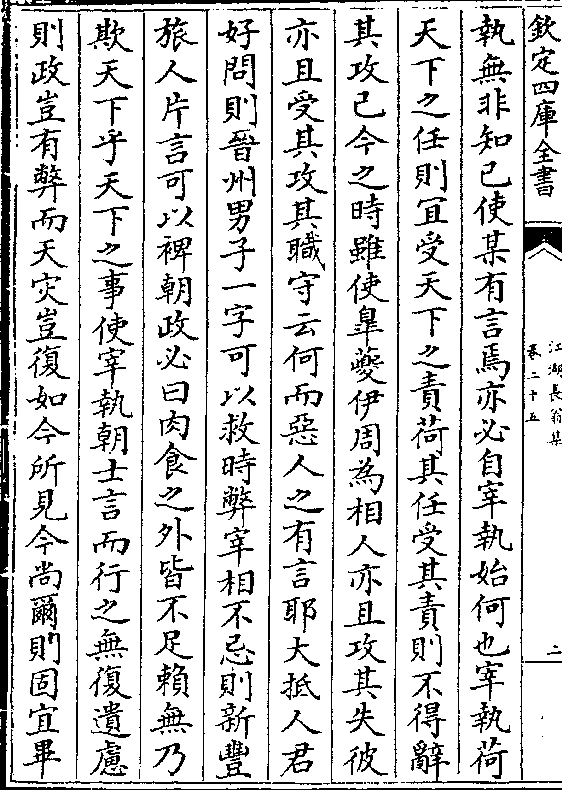 欽定四庫全書
江湖長翁集
卷二十五
二
執無非知已使某有言焉亦必自宰執始何也宰執荷
天下之任則宜受天下之責荷其任受其責則不得辭
其攻已今之時雖使臯夔伊周為相人亦且攻其失彼
亦且受其攻其職守云何而惡人之有言耶大抵人君
好問則晉州男子一字可以救時弊宰相不忌則新豐
旅人片言可以裨朝政必曰肉食之外皆不足賴無乃
欺天下乎天下之事使宰執朝士言而行之無復遺慮
則政豈有弊而天灾豈復如今所見今尚爾則固宜畢